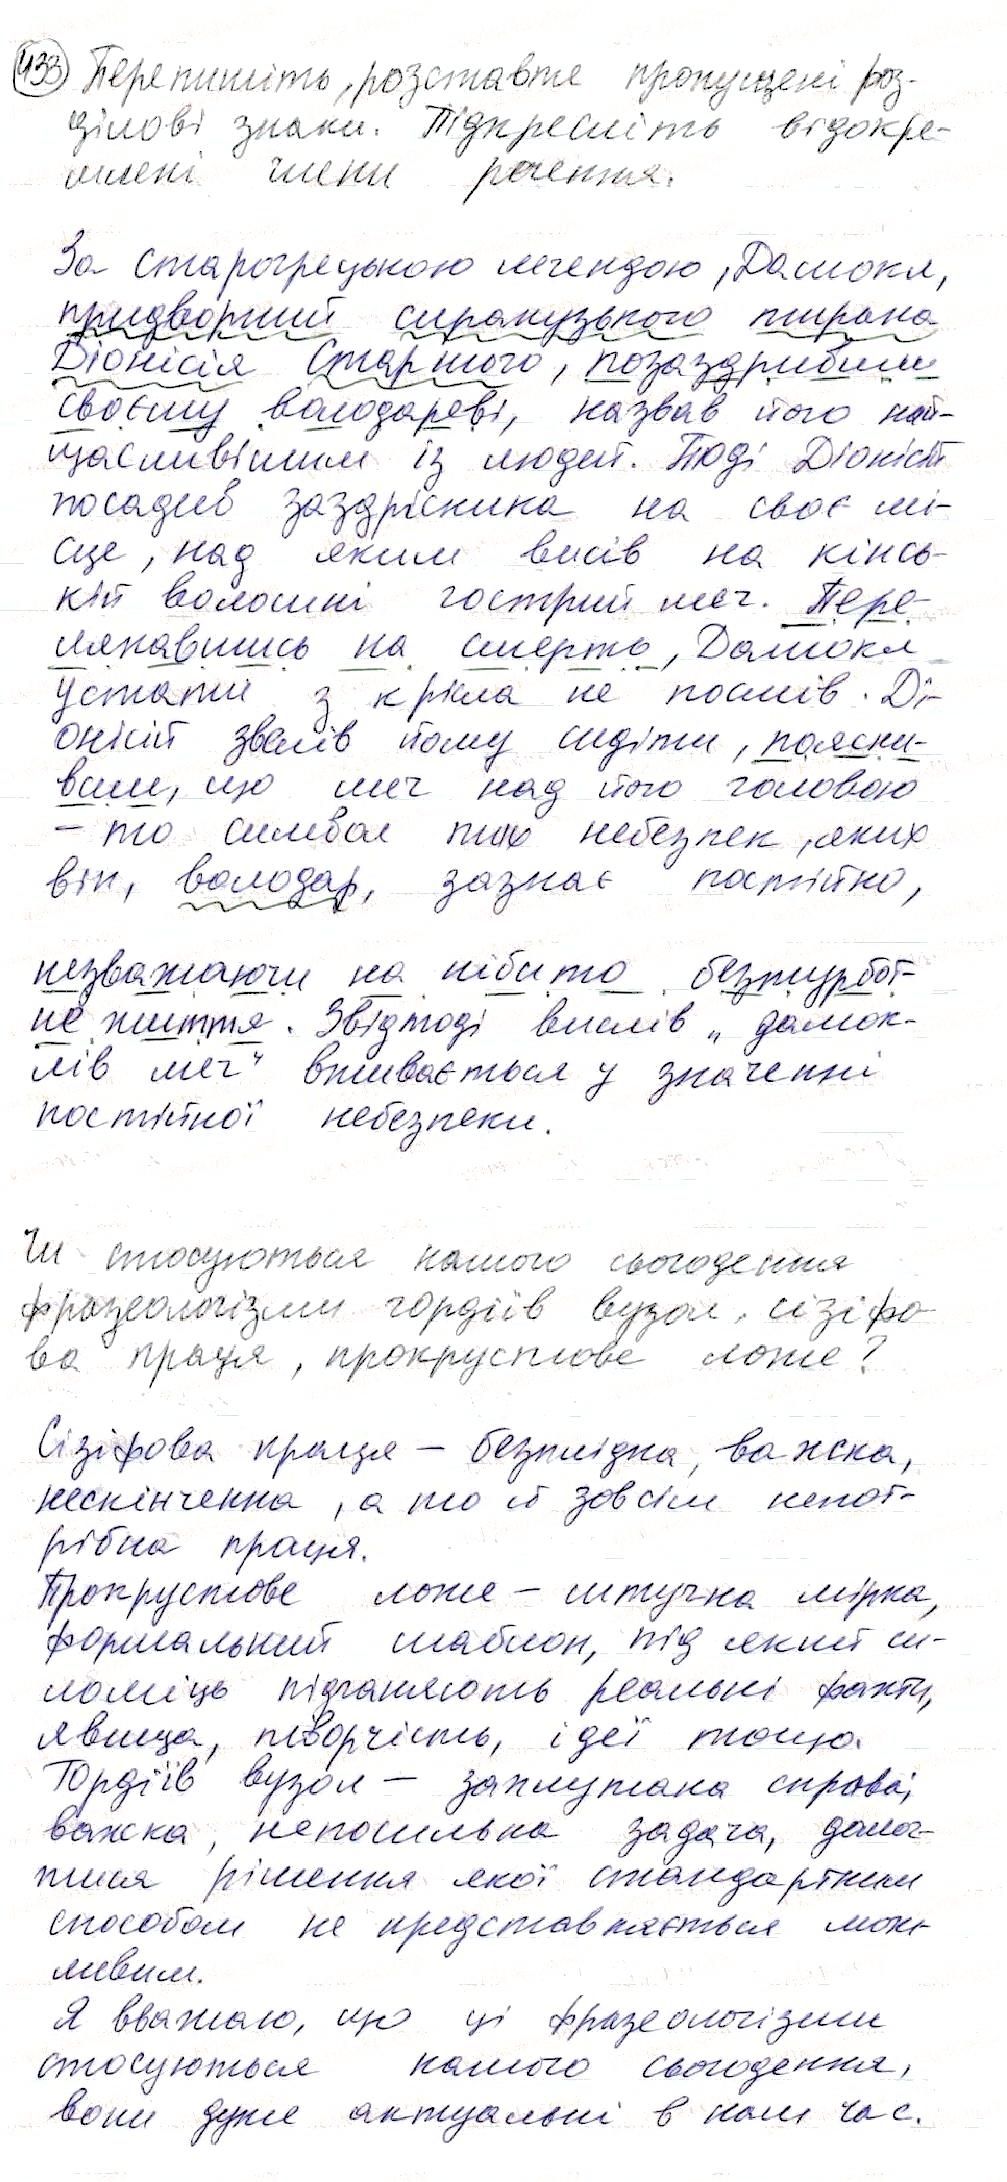 433 Перепишіть, розставте пропущені роз-
ділові знаки. Підкресліть відокре-
млені члени речення.
За старогрецькою легендою, Дамокл,
придворний сиракузького тирана
Діонісія Старшого, позаздривши
своєму володареві, назвав його най-
щасливішим із людей. Тоді Діонісій
посадив заздрісника на своє мі-
сце, над яким висів на кінсь-
кій волосині гострий меч. Пере-
лякавшись на смерть, Дамокл
устати з крісла не посмів. Ді-
онісій звелів йому сидіти, поясни-
вши, що меч над його головою
– то символ тих небезпек, яких
він, володар, зазнає постійно,
незважаючи на нібито безтурбот-
не життя. Звідтоді вислів „дамок-
лів меч" вживається у значенні
постійної небезпеки.
Чи стосуються нашого сьогодення
фразеологізми гордіїв вузол, сізіфо
ва праця, прокрустове ложе?
Сізіфова праця – безплідна, важка,
нескінченна, а то й зовсім непот-
рібна праця.
Прокрустове ложе – штучна мірка,
формальний шаблон, під який си-
ломіць підганяють реальні факти,
явища, творчість, ідеї тощо.
Гордіїв вузол – заплутана справа,
важка, непосильна задача, домог-
тися рішення якої стандартним
способом не представляється мож-
ливим.
Я вважаю, що ці фразеологізми
стосуються нашого сьогодення,
вони дуже актуальні в наш час.